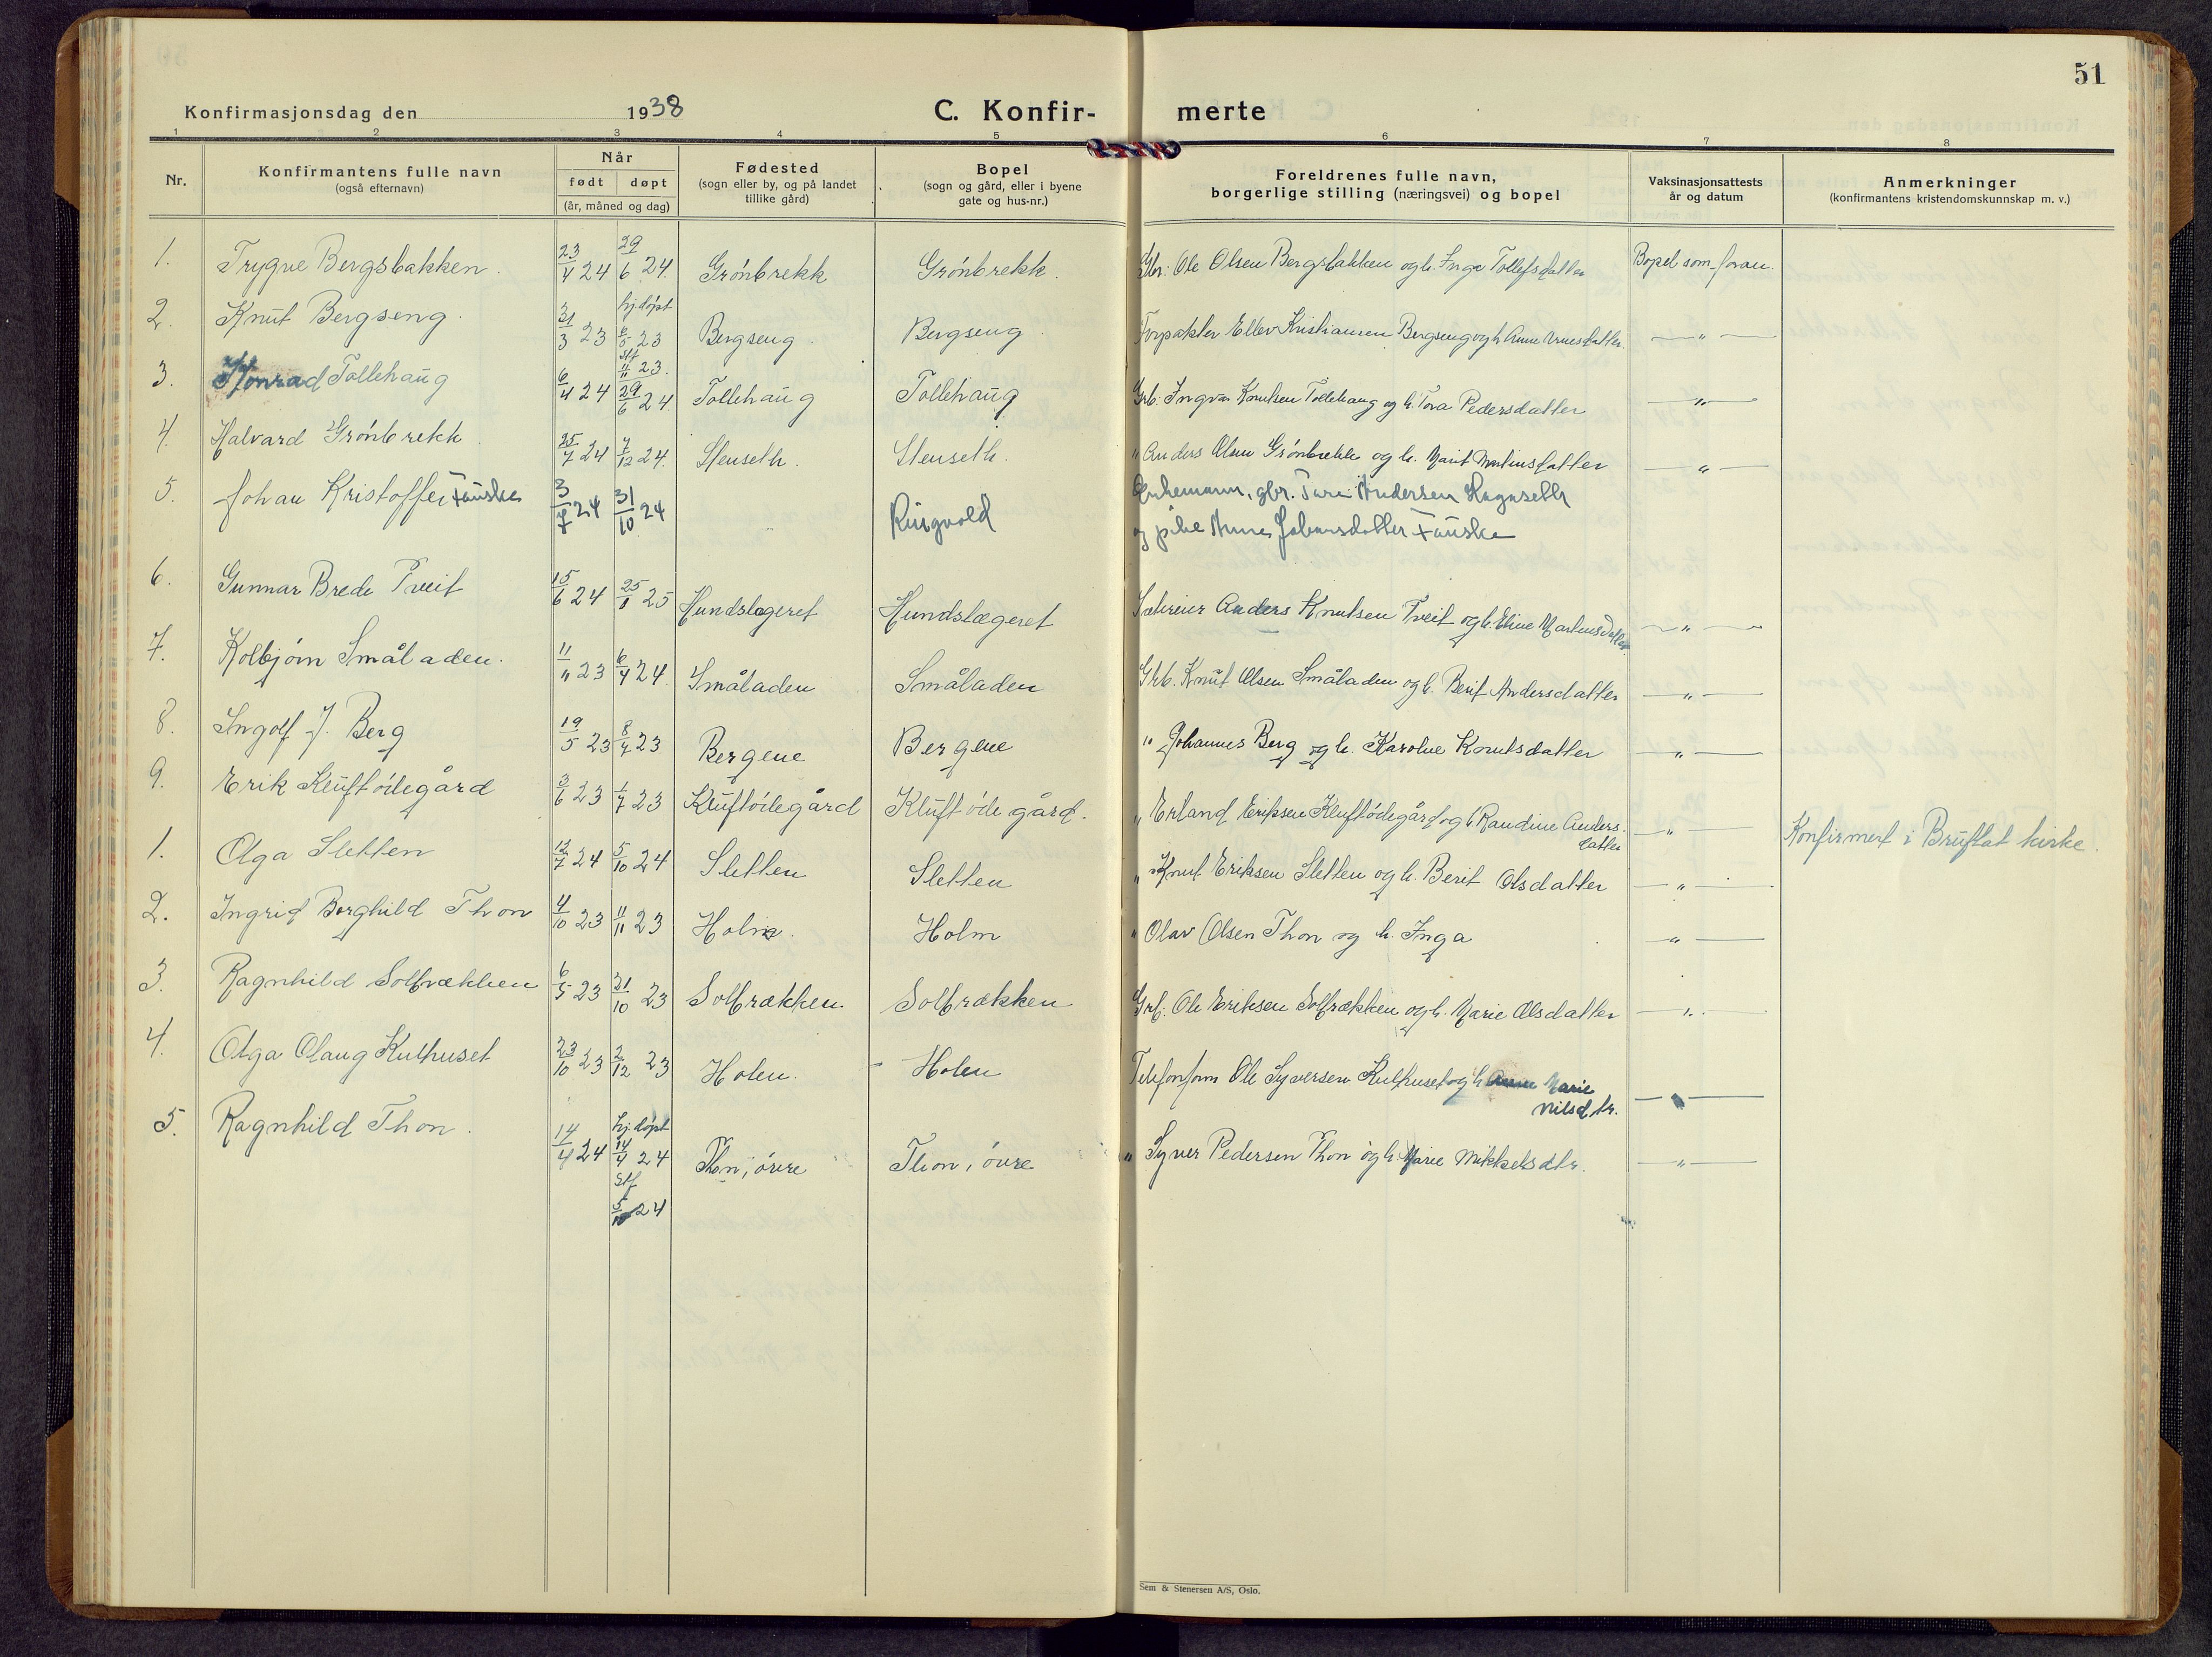 51
Konfirmasjonsdag den 1938 C. Konfir- merte
1 2 3 4 5 6 7 8
Nr.
Konfirmantens fulle navn
(også efternavn)
Når
født døpt
(år, måned og dag)
Fødested
(sogn eller by, og på landet
tillike gård)
Bopel
(sogn og gård, eller i byene
gate og hus-nr.)
Foreldrenes fulle navn,
borgerlige stilling (næringsvei) og bopel
Vaksinasjonsattests
år og datum
Anmerkninger
(konfirmantens kristendomskunnskap m. v.)
1. Trygve Bergsbakken. 23/4 24 29/6 24. Grónbrekk Grónbrekk. Gbr: Ole Olsen Bergsbakken og h. Inga Tollefsdatter Bopel som foran.
2. Knut Bergseng. 31/3 23 hj.døpt 6/5 23 Stf 4/11 23. Bergseng. Bergseng. Forpakter Ellev Kristiansen Bergseng og h. Anne Arnesdatter. — " —
3. Konrad Tollehaug 6/4 24 29/6 24. Tollehaug Tollehaug Grb: Ingvar Knutsen Tollehaug og h. Tora Pedersdatter — " —
4. Halvard Grónbrekk. 25/7 24 7/12 24. Stenseth. Stenseth. " Anders Olsen Grónbrekk og h. Marit Martinsdatter — " —
5. Johan Kristoffer Fauske 3/7 24 31/10 24 Ringvold Enkemann, gbr. Andersen
og pike Anne Fauske
6. Gunnar Brede Tveit 15/6 24 25/1 25 Hundslægeret Hundslægeret Anders Knutsen Tveit og h. Eline Martinsdatter. — " —
7. Kolbjórn Småladen. 11/11 23 6/4 24. Småladen Småladen Grb. Knut Olsen Småladen og h. Berit Andersdatter — " —
8. Ingolf J. Berg 19/5 23 8/7 23 Bergene Bergene " Johannes Berg og h. Karoline Knutsdatter — " —
9. Erik Kluftódegård 3/6 23 1/7 23 Kluftódegård Kluftódegård. " Erland Eriksen Kluftódegård og h. Randine Anders-
datter — " — Konfirmert i Bruflat kirke.
1. Olga Sletten 12/7 24 5/10 24 Sletten Sletten " Knut Eriksen Sletten og h. Berit Olsdatter — " —
2. Ingrid Borghild Thon 4/10 23 11/11 23 Holm. Holm " Olav Olsen Thon og h. Inga — " —
3. Ragnhild Solbrækken 6/5 23 21/10 23 Solbrækken. Solbrækken Grb: Ole Eriksen Solbrækken og h. Marie Olsdatter — " —
4. Olga Olaug Kulhuset 23/10 23 2/12 23 Holen. Holen Telefonform Ole Syversen Kulhuset og h. Anne Marie
Nilsdtr. — " —
5. Ragnhild Thon. 14/4 24 hj.døpt 14/4 24 Stf 5/10 24 Thon, óvre Thon, óvre " Syver Pedersen Thon og h. Marie Mikkelsdtr. — " —
Sem & Stenersen A/S, Oslo.